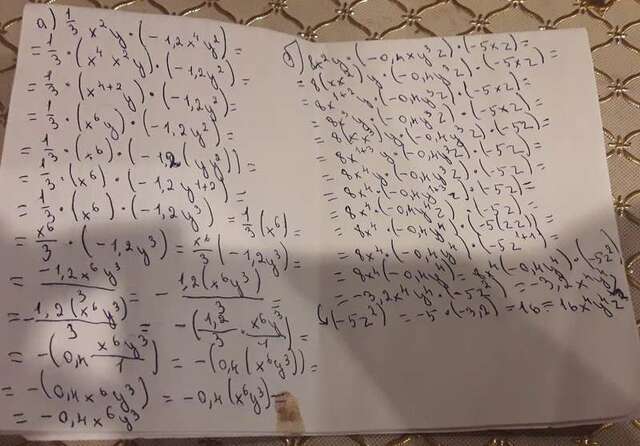 а) 1/3 x²y · (-1,2x⁴y²) =
= 1/3 · (x⁴x²y) · (-1,2y²) =
= 1/3 · (x⁴⁺²y) · (-1,2y²) =
= 1/3 · (x⁶y) · (-1,2y²) =
= 1/3 · (x⁶) · (-1,2(yy²)) =
= 1/3 · (x⁶) · (-1,2y¹⁺²) =
= 1/3 · (x⁶) · (-1,2y³) = 1/3(x⁶) =
= x⁶/3 · (-1,2y³) = x⁶/3 (-1,2y³) =
= -1,2x⁶y³/3 = - 1,2(x⁶y³)/3 =
= - 1,2(x⁶y³)/3 = -(1,2/3 · x⁶y³/1) =
= -(0,4 x⁶y³/1) = -(0,4(x⁶y³)) =
= -(0,4x⁶y³) = -0,4(x⁶y³) =
= -0,4x⁶y³
8x²y · (-0,4xy³z) · (-5xz) =
= 8(xx²)y · (-0,4y³z) · (-5xz) =
= 8x¹⁺²y · (-0,4y³z) · (-5xz) =
= 8x³y · (-0,4y³z) · (-5xz) =
= 8(xx³)y · (-0,4y³z) · (-5z) =
= 8x⁴y · (-0,4y³z) · (-5z) =
= 8x⁴ · (-0,4y⁴) · (-5(zz)) =
= 8x⁴ · (-0,4y⁴) · (-5z¹⁺¹) =
= 8x⁴(-0,4y⁴) = 8x⁴(-0,4y⁴) · (-5z²)
= -3,2x⁴y⁴ · (-5z²) = -3,2x⁴y⁴
(-5z²) = -5 · (-3,2) = 16 = 16x⁴y⁴z²